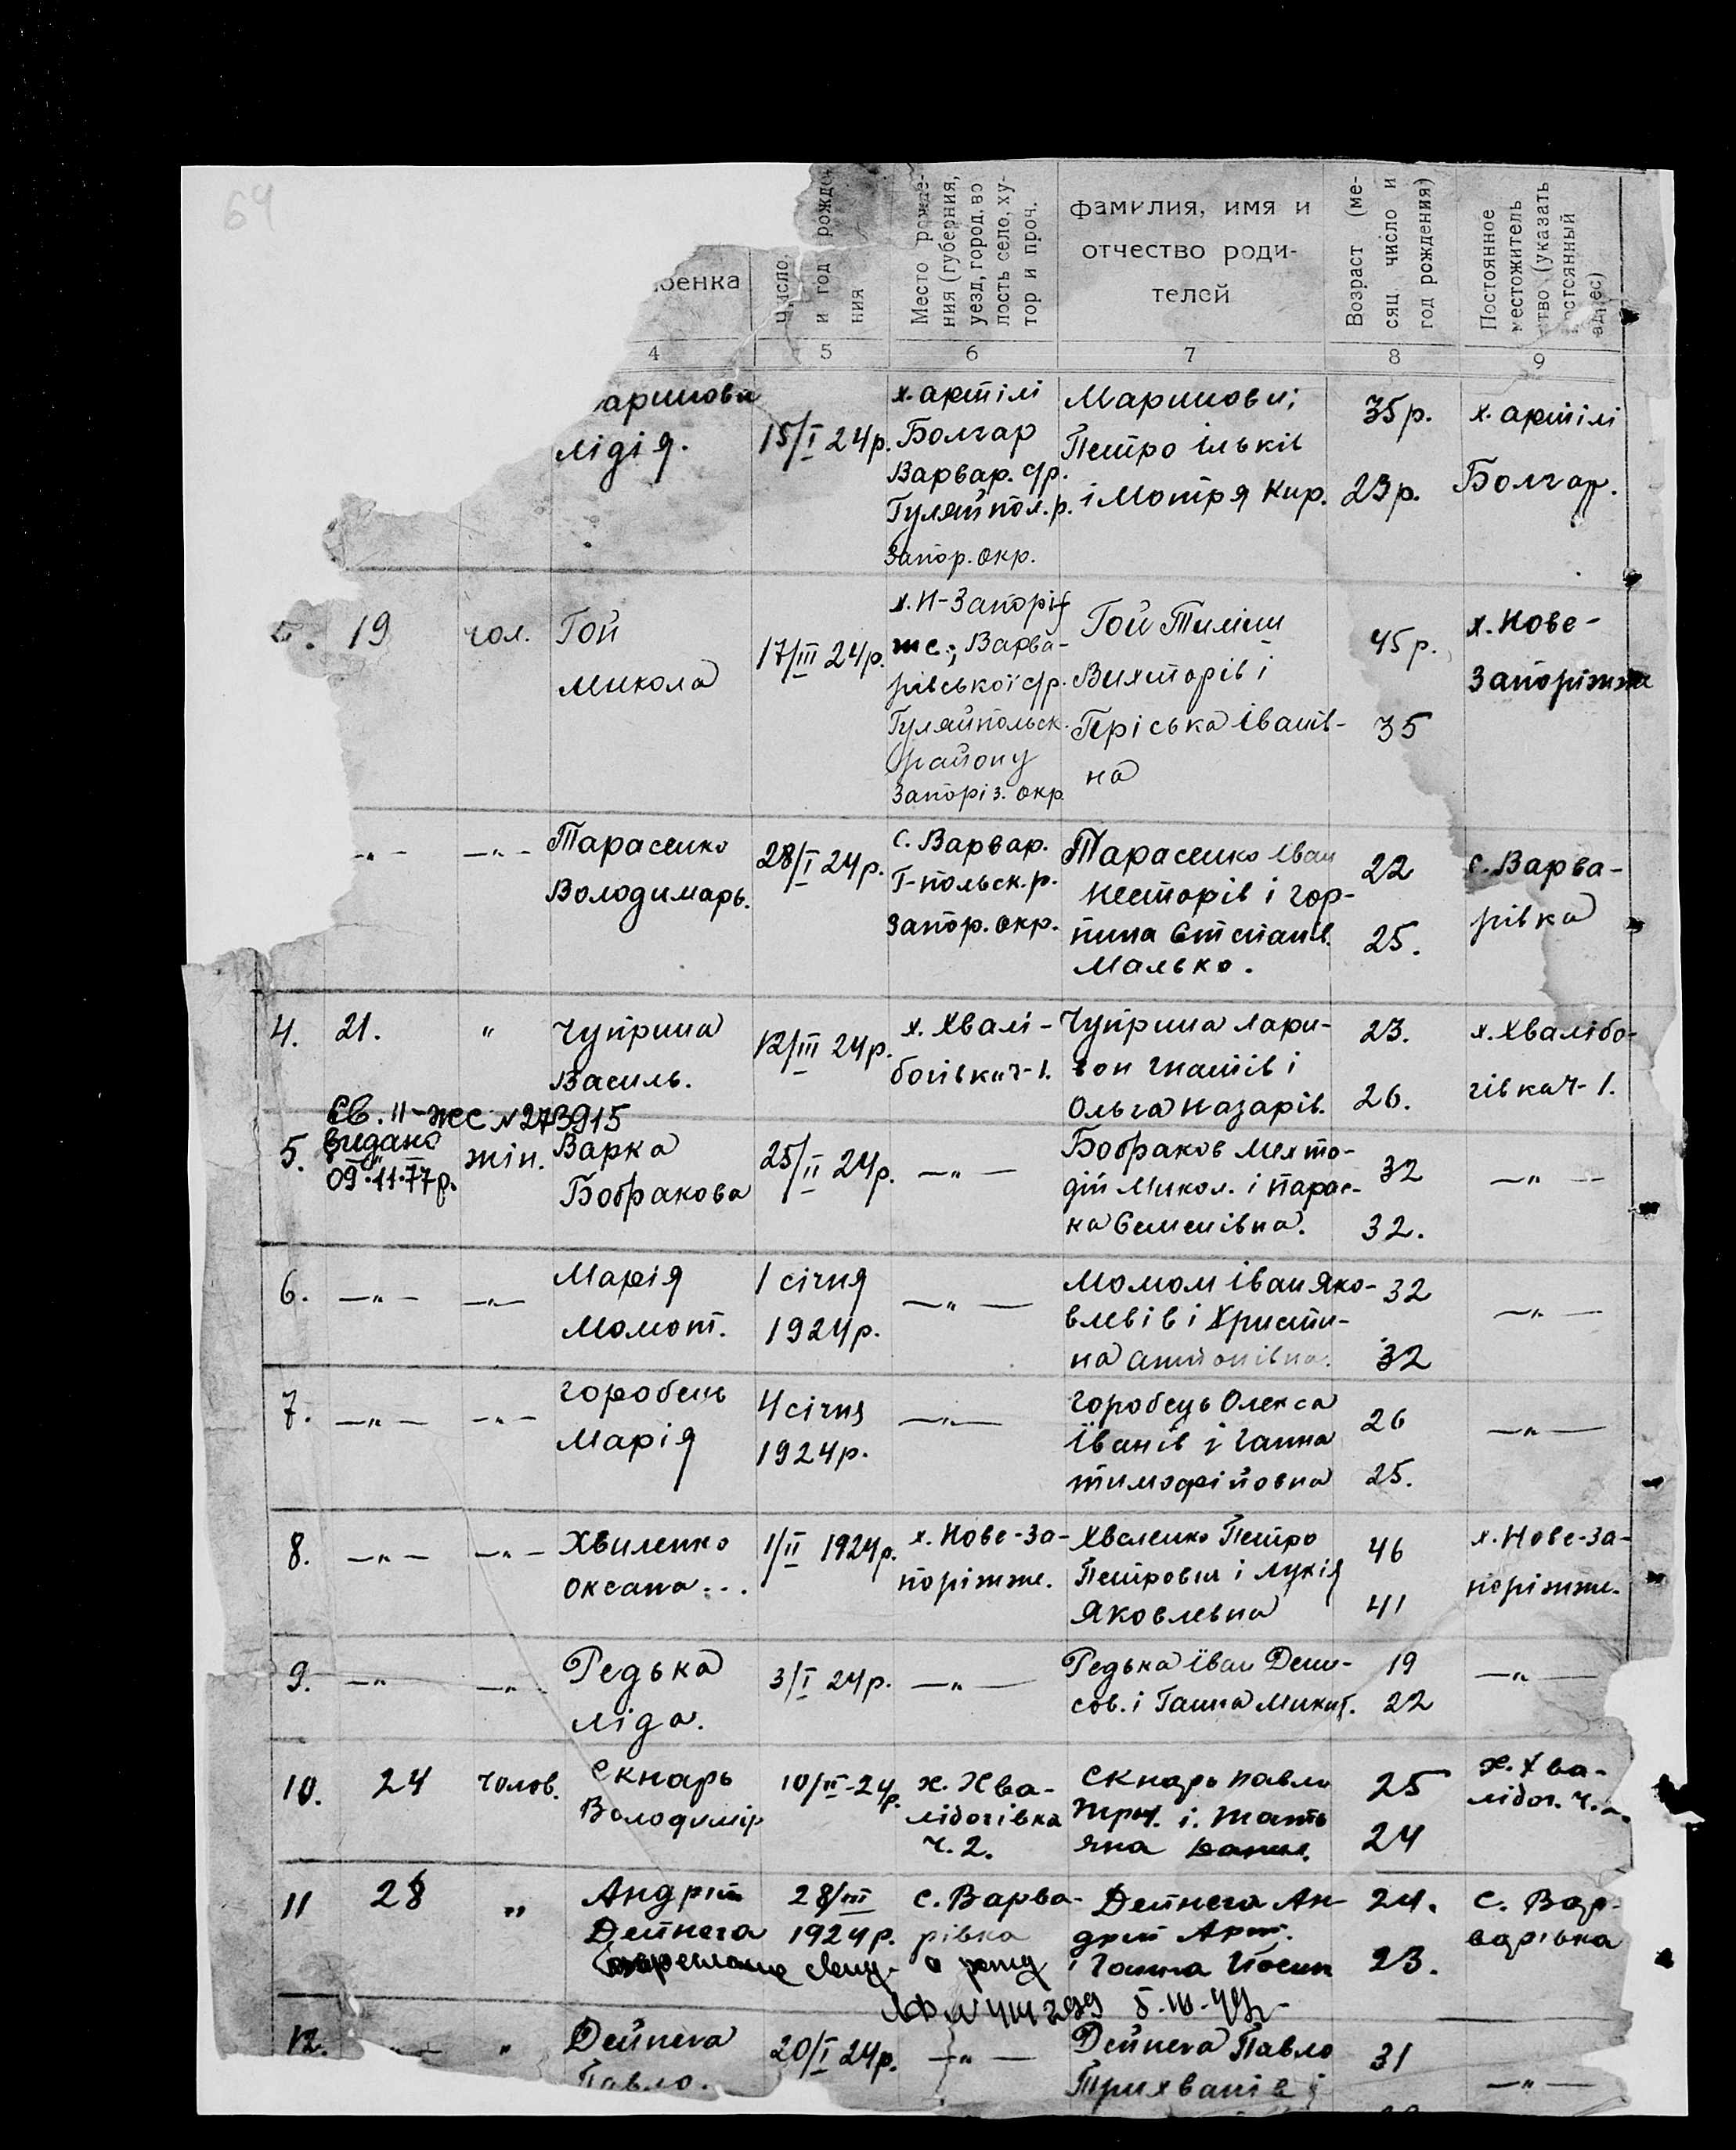 64
бенка
число
и год рожде
ния
Место рожде-
ния (губерния,
уезд, город, во
лость село, ху-
тор и проч.
фамилия, имя и
отчество роди-
телей
Возраст (ме-
сяц число и
год рождения)
Постоянное
местожитель
ство (указать
постоянный
адрес)
4 5 6 7 8 9
Лідія.
15/I 24р.
х. артілі
Болгар
Варвар. с/р.
Гуляйпол. р.
Запор. окр.
Петро Ільків
і Мотря Кир.
35р.
23р.
х. артілі
Болгар.
19 чол. Гой
Микола
17/III 24р.
х. Н-Запорі
же; Варва-
рівської с/р.
Гуляйпольск.
району
Запоріз. окр
Гой
Вихторів і
Пріська Іванів-
на
45р.
35
х. Нове-
Запоріжже
—„— —„— Тарасенко
Володимарь.
28/I 24р.
с. Варвар.
Г-польск. р.
Запор. окр.
Тарасенко Іван
Несторів і Гор-
пина Степанів.
Малько.
22
25.
с. Варва-
рівка
4. 21. „ Чуприна
Василь.
12/III 24р.
х. Хвалі-
богівка ч-1.
Чуприна Лари-
вон Гнатів і
Ольга Назарів.
23.
26.
х. Хвалібо-
гівка ч-1.
Св. II-ЖС N 273915
видано
09.11.77р.
5. „ жін. Варка
Бобракова
25/II 24р.
—„—
Бобраков Мехто-
дій Микол. і Парас-
ка Семенівна.
32
32.
—„—
6. —„— —„— Марія
Момот.
1 січня
1924р.
—„—
Момот Іван Яко-
влевів і Христи-
на Антонівна.
32
32
—„—
7. —„— —„— Горобець
Марія
4 січня
1924р.
—„—
Горобець Олекса
Іванів і Ганна
Тимофійовна
26
25.
—„—
8. —„— —„— Хвиленко
Оксана...
1/II 1924р.
х. Нове-За-
поріжже.
Хвиленко Петро
Петрович і Лукія
Яковлевна
46
41
х. Нове-За-
поріжже.
9. —„— —„— Редька
Ліда.
3/I 24р.
—„—
Редька Іван Дени-
сов. і Ганна Микит.
19
22
—„—
10. 24 чолов. Скнарь
Володимір
10/III-24р.
х. Хва-
лібогівка
ч. 2.
Скнарь Павло
і. Тать
яна Данил.
25
24
х. Хва-
лібог. ч.
11 28 „ Андрій
Дейнега
28/III
1924р.
с. Варва-
рівка
Дейнега Ан-
дрій Арт.
і Ганна Йосип
24.
23.
с. Вар-
варівка
12. —„— „ Дейнега
Павло.
20/I 24р.
—„—
Дейнега Павло
Трихванів і
31
—„—